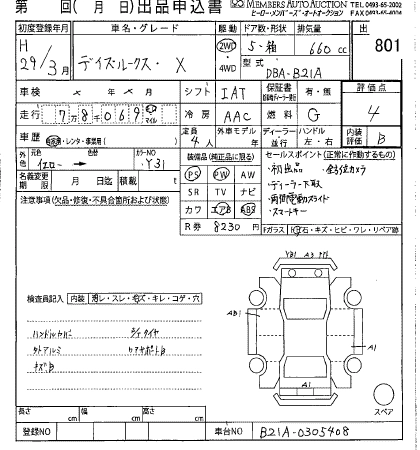 第 回( 月 日)出品申込書 MEMBERS AUTO AUCTION TEL 0493-65-2002
ヒーロー・メンバーズ・オートオークション FAX 0493-65-
初度登録年月 車名・グレード 駆動 ドア数・形状 排気量 出
H 29年3月 デイズルークス・X 2WD・4WD 5・箱 660cc 801
型式 DBA-B21A
車検 × 年 × 月 シフト IAT 保証書 有・無 評価点
走行 7万8千069 キロ マイル 冷房 AAC 燃料 G 4
車歴 自家用・レンタ・事業用( ) 定員 4人 外車モデル 年 ディーラー 並行 ハンドル 左・右 内装評価 B
外色 元色 イエロー → 色替 カラーNO Y31
名義変更期限 月 日迄 積載 t
注意事項(欠品・修復・不具合箇所および状態)
装備品(純正品に限る) セールスポイント(正常に作動するもの)
PS PW AW ・初出品 ・全方位カメラ
SR TV ナビ ・ディーラー下取
カワ エアB ABS ・両側電動スライド
・スマートキー
R券 8230円 Fガラス 飛石・キズ・ヒビ・ワレ・リペア跡
検査員記入 内装 汚レ・スレ・キズ・キレ・コゲ・穴
ハンドルカバー
タイヤ
外アルミ
リアサポートB
キズB
Y31 A3
AB1
A1
A1
スペア
長さ cm 幅 cm 高さ cm
登録NO 車台NO B21A-0305408